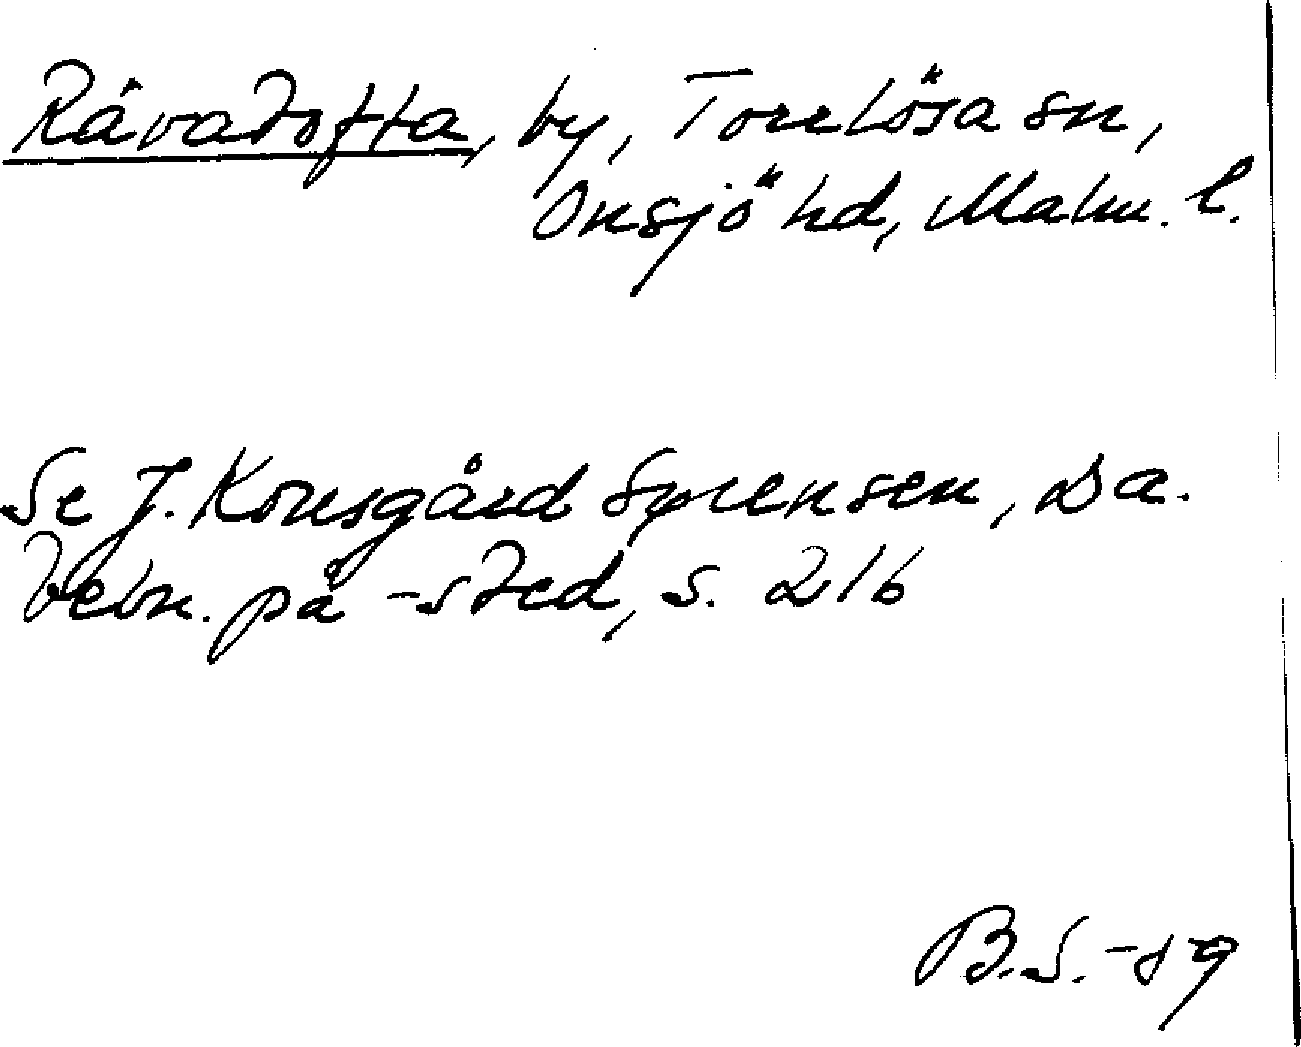 Rävatofta, by, Torrlösa sn,
Onsjö hd, Malm. l.
Se J. Kousgård Sørensen, Da.
bebn. på -sted, s. 216
B.S. -89